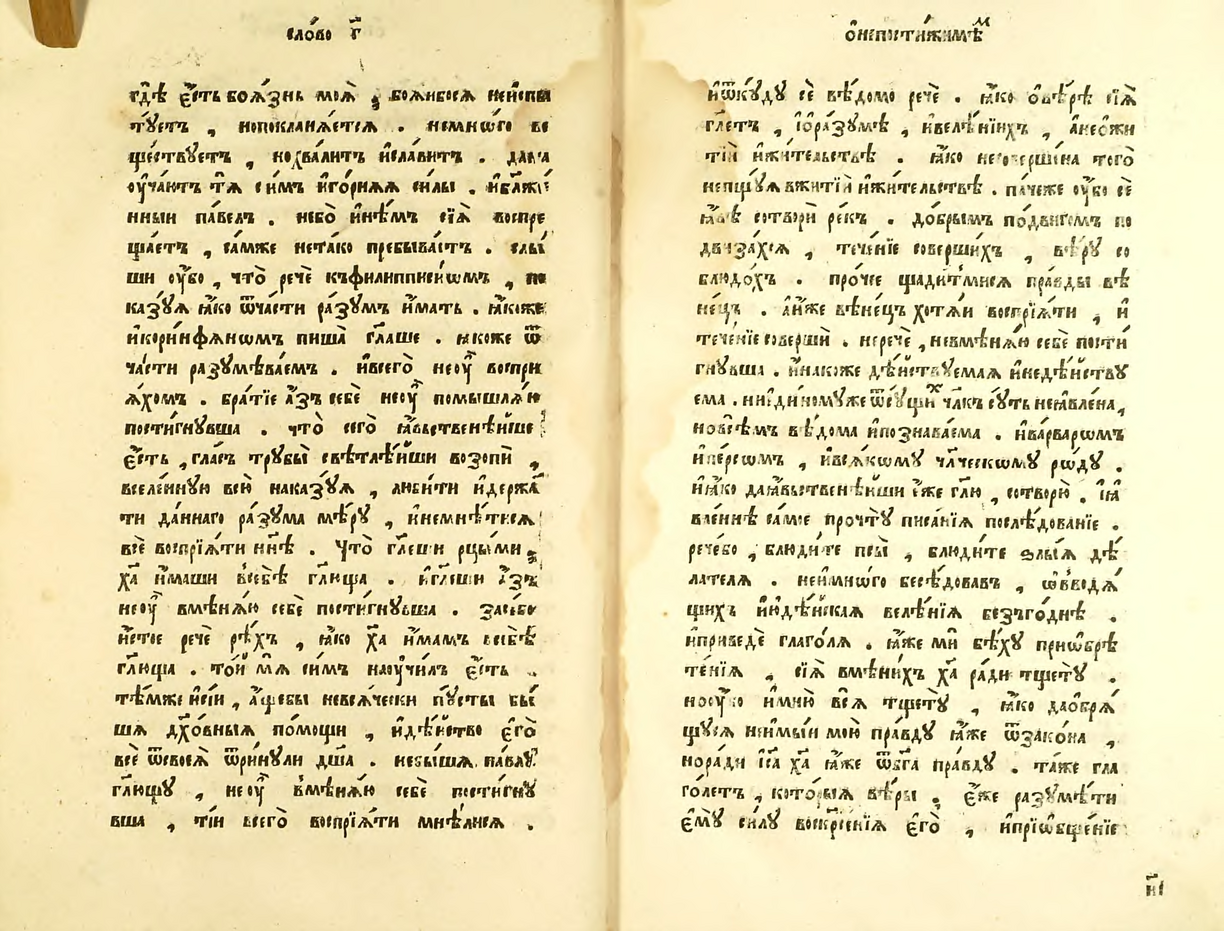 сло́во г҃
гдѣ̀ є҆́сть боѧ́знь моѧ̀ ; боѧ́йбосѧ неи҆спы
тꙋ́етъ , нопокланѧ́етсѧ . немно́го ве
ще́ствꙋетъ , нохва́литъ и҆сла́витъ . да
ᲂу҆ча́итъ тѧ̀ си́мъ и҆го́рнѧѧ си́лы . и҆бл҃же́
нныи па́велъ . не́бо и҆нѣ́мъ сїѧ̀ воспре
ща́етъ , са́мже нета́ко пребыва́етъ . слы́
ши ᲂу҆́бо , что̀ речѐ къфилипписи́ѡмъ , по
ка́зꙋѧ ꙗ҆́ко ѿча́сти ра́зꙋмъ и҆́мать . ꙗ҆́коже
и҆кори́нфѧнѡмъ пиша̀ гл҃аше . ꙗкоже ѿ
ча́сти разꙋмѣва́емъ . и҆всего̀ неᲂу҆̀ воспри
ѧ́хомъ . бра́тїе а҆́зъ себѐ неᲂу҆̀ помышлѧ́ю
пости́гнꙋвша . что̀ сего̀ ꙗ҆́вьственѣйше
є҆́сть , гла́съ трꙋбы̀ свѣтлѣ́йши возопѝ ,
вселе́ннꙋю всю̀ нака́зꙋѧ , люби́ти и҆держа́
ти да́ннаго ра́зꙋма мѣ́рꙋ , и҆немнѣ́тисѧ
всѐ воспрїѧ́ти нн҃ѣ . Что̀ гл҃еши рцы́ми ,
хр҃та̀ и҆́маши всебѣ̀ гл҃ща . и҆гл҃еши а҆́зъ
неᲂу҆̀ вмѣнѧ́ю себѐ пости́гнꙋвша . засебо
и҆́стое речѐ рѣ́хъ , ꙗ҆́ко хр҃та̀ и҆́мамъ всебѣ̀
гл҃юща . то́й мѧ̀ си́мъ наᲂу҆чи́лъ є҆́сть .
тѣ́мже и҆сі́и , а҆́щебы невсѧ́чески пꙋ́сты бы́
ша дх҃о́вныѧ по́мощи , и҆дѣ́йство є҆го̀
всѐ ѿсвоеѧ̀ ѿри́нꙋли дш҃а . небы́шѧ па́влꙋ
гл҃ющꙋ , неᲂу҆̀ вмѣнѧ́ю себѐ пости́гнꙋ
вша , ті́и всего̀ воспрїѧ́ти мнѣ́лисѧ .
ѻ҆непостижи́мѣм
и҆ѿкꙋ́дꙋ сѐ вѣ́домо речѐ . ꙗ҆́ко ѻ҆вѣ́рѣ сїѧ̀
гл҃етъ , и҆ѻ҆ра́зꙋмѣ , и҆велѣ́нїихъ , а҆неѻ҆жи
тїѝ и҆жи́тельствѣ . ꙗ҆́ко несоверше́на того̀
непщꙋ́ѧ вжитїѝ и҆жи́тельствѣ . па́чеже ᲂу҆́бо сѐ
ꙗ҆́вѣ сотворѝ ре́къ . до́брымъ по́двигомъ по
двиза́хсѧ , тече́нїе соверши́хъ , вѣ́рꙋ со
блюдо́хъ . про́чее щади́тмисѧ пра́вды вѣ
не́цъ . а҆́йже вѣне́цъ хотѧ́й воспрїѧ́ти , и҆
тече́нїе совершѝ . неречѐ , невмѣнѧ́ю себѐ пости́
гнꙋвша . и҆на́коже дѣ́йствꙋемаѧ и҆недѣ́йствꙋ
ема . ниеди́номꙋже ѿсꙋ́щих чл҃къ сꙋ́ть неꙗ҆влена ,
новсѣ́мъ вѣ́дома и҆познава́ема . и҆ва́рварѡмъ
и҆пе́рсѡмъ , и҆всѧ́комꙋ чл҃ческомꙋ ро́дꙋ .
и҆ꙗ҆́ко даꙗ҆́вьственѣйши є҆́же гл҃ю , сотворю̀ . і҆ꙗ҆
вле́ннѣ са́мое прочтꙋ̀ писа́нїѧ послѣ́дованїе .
рече́бо , блюди́те псы̀ , блюди́те ѕлы́ѧ дѣ́
лателѧ . неи҆мно́го бесѣ́довавъ , ѡ҆вводѧ́
щихъ и҆ю҆де́йскаѧ велѣ́нїѧ безъго́днѣ .
и҆приведѐ глаго́лѧ . ꙗ҆́же мѝ бѣ́хꙋ приѡбрѣ
те́нїѧ , сїѧ̀ вмѣни́хъ хр҃та̀ ра́ди тщетꙋ̀ .
ноᲂу҆́бо и҆мню̀ всѧ̀ тщетꙋ̀ , ꙗ҆́ко даѡбрѧ́
щꙋсѧ неи҆мы́и мою̀ пра́вдꙋ ꙗ҆́же ѿзако́на ,
нора́ди і҆с҃а хр҃та̀ ꙗ҆́же ѿбг҃а пра́вдꙋ . та́же гла
го́летъ , кото́рыѧ вѣ́ры , є҆́же разꙋмѣ́ти
є҆мꙋ̀ си́лꙋ воскрⷭ҇е́нїѧ є҆го̀ , и҆прїѡбще́нїе
н҃і